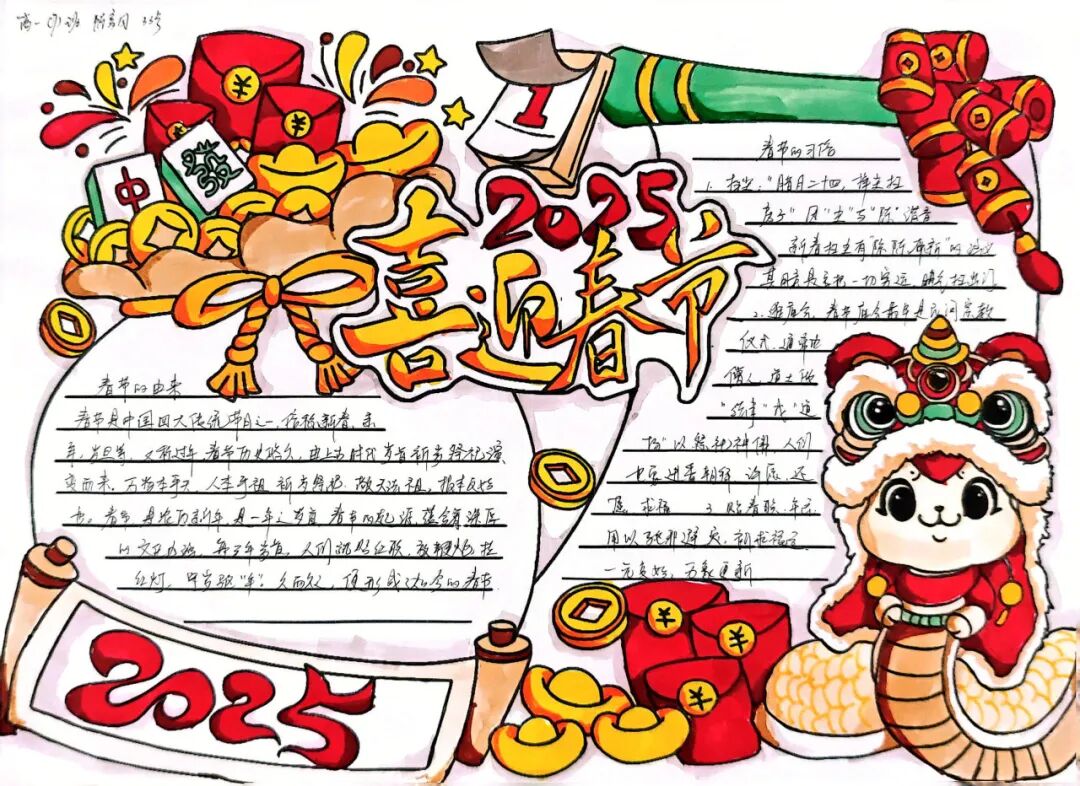 高一
2025
喜迎春节
1
中
發
¥
¥
春节的由来
春节是中国四大传统节日之一,俗称新春、新
年、岁旦等,又称过年 春节历史悠久,由上古时代岁首祈岁祭祀演
变而来。万物本乎天、人本乎祖 祈岁祭祀、敬天法祖,报本反始
也。春节 是农历新年 是一年之岁首 春节的起源 蕴含着深厚
的文化内涵,每到年岁首,人们就贴红联,放鞭炮 挂
红灯,久而久之 便形成了如今的春节
2025
春节的习俗
1、扫尘:"腊月二十四,掸尘扫
房子" 因"尘"与"陈"谐音
新春扫尘有"除陈布新"的
其用意是要把一切 扫出门
2、逛庙会,春节庙会最早是民间宗教
仪式,通常由
僧人、道士做
"斋事"或"道
场"以祭祀神佛,人们
也会进香朝拜 许愿、还
愿、求福 3、贴春联 年画
用以驱邪避灾、祈求福
一元复始,万象更新
¥
¥
¥